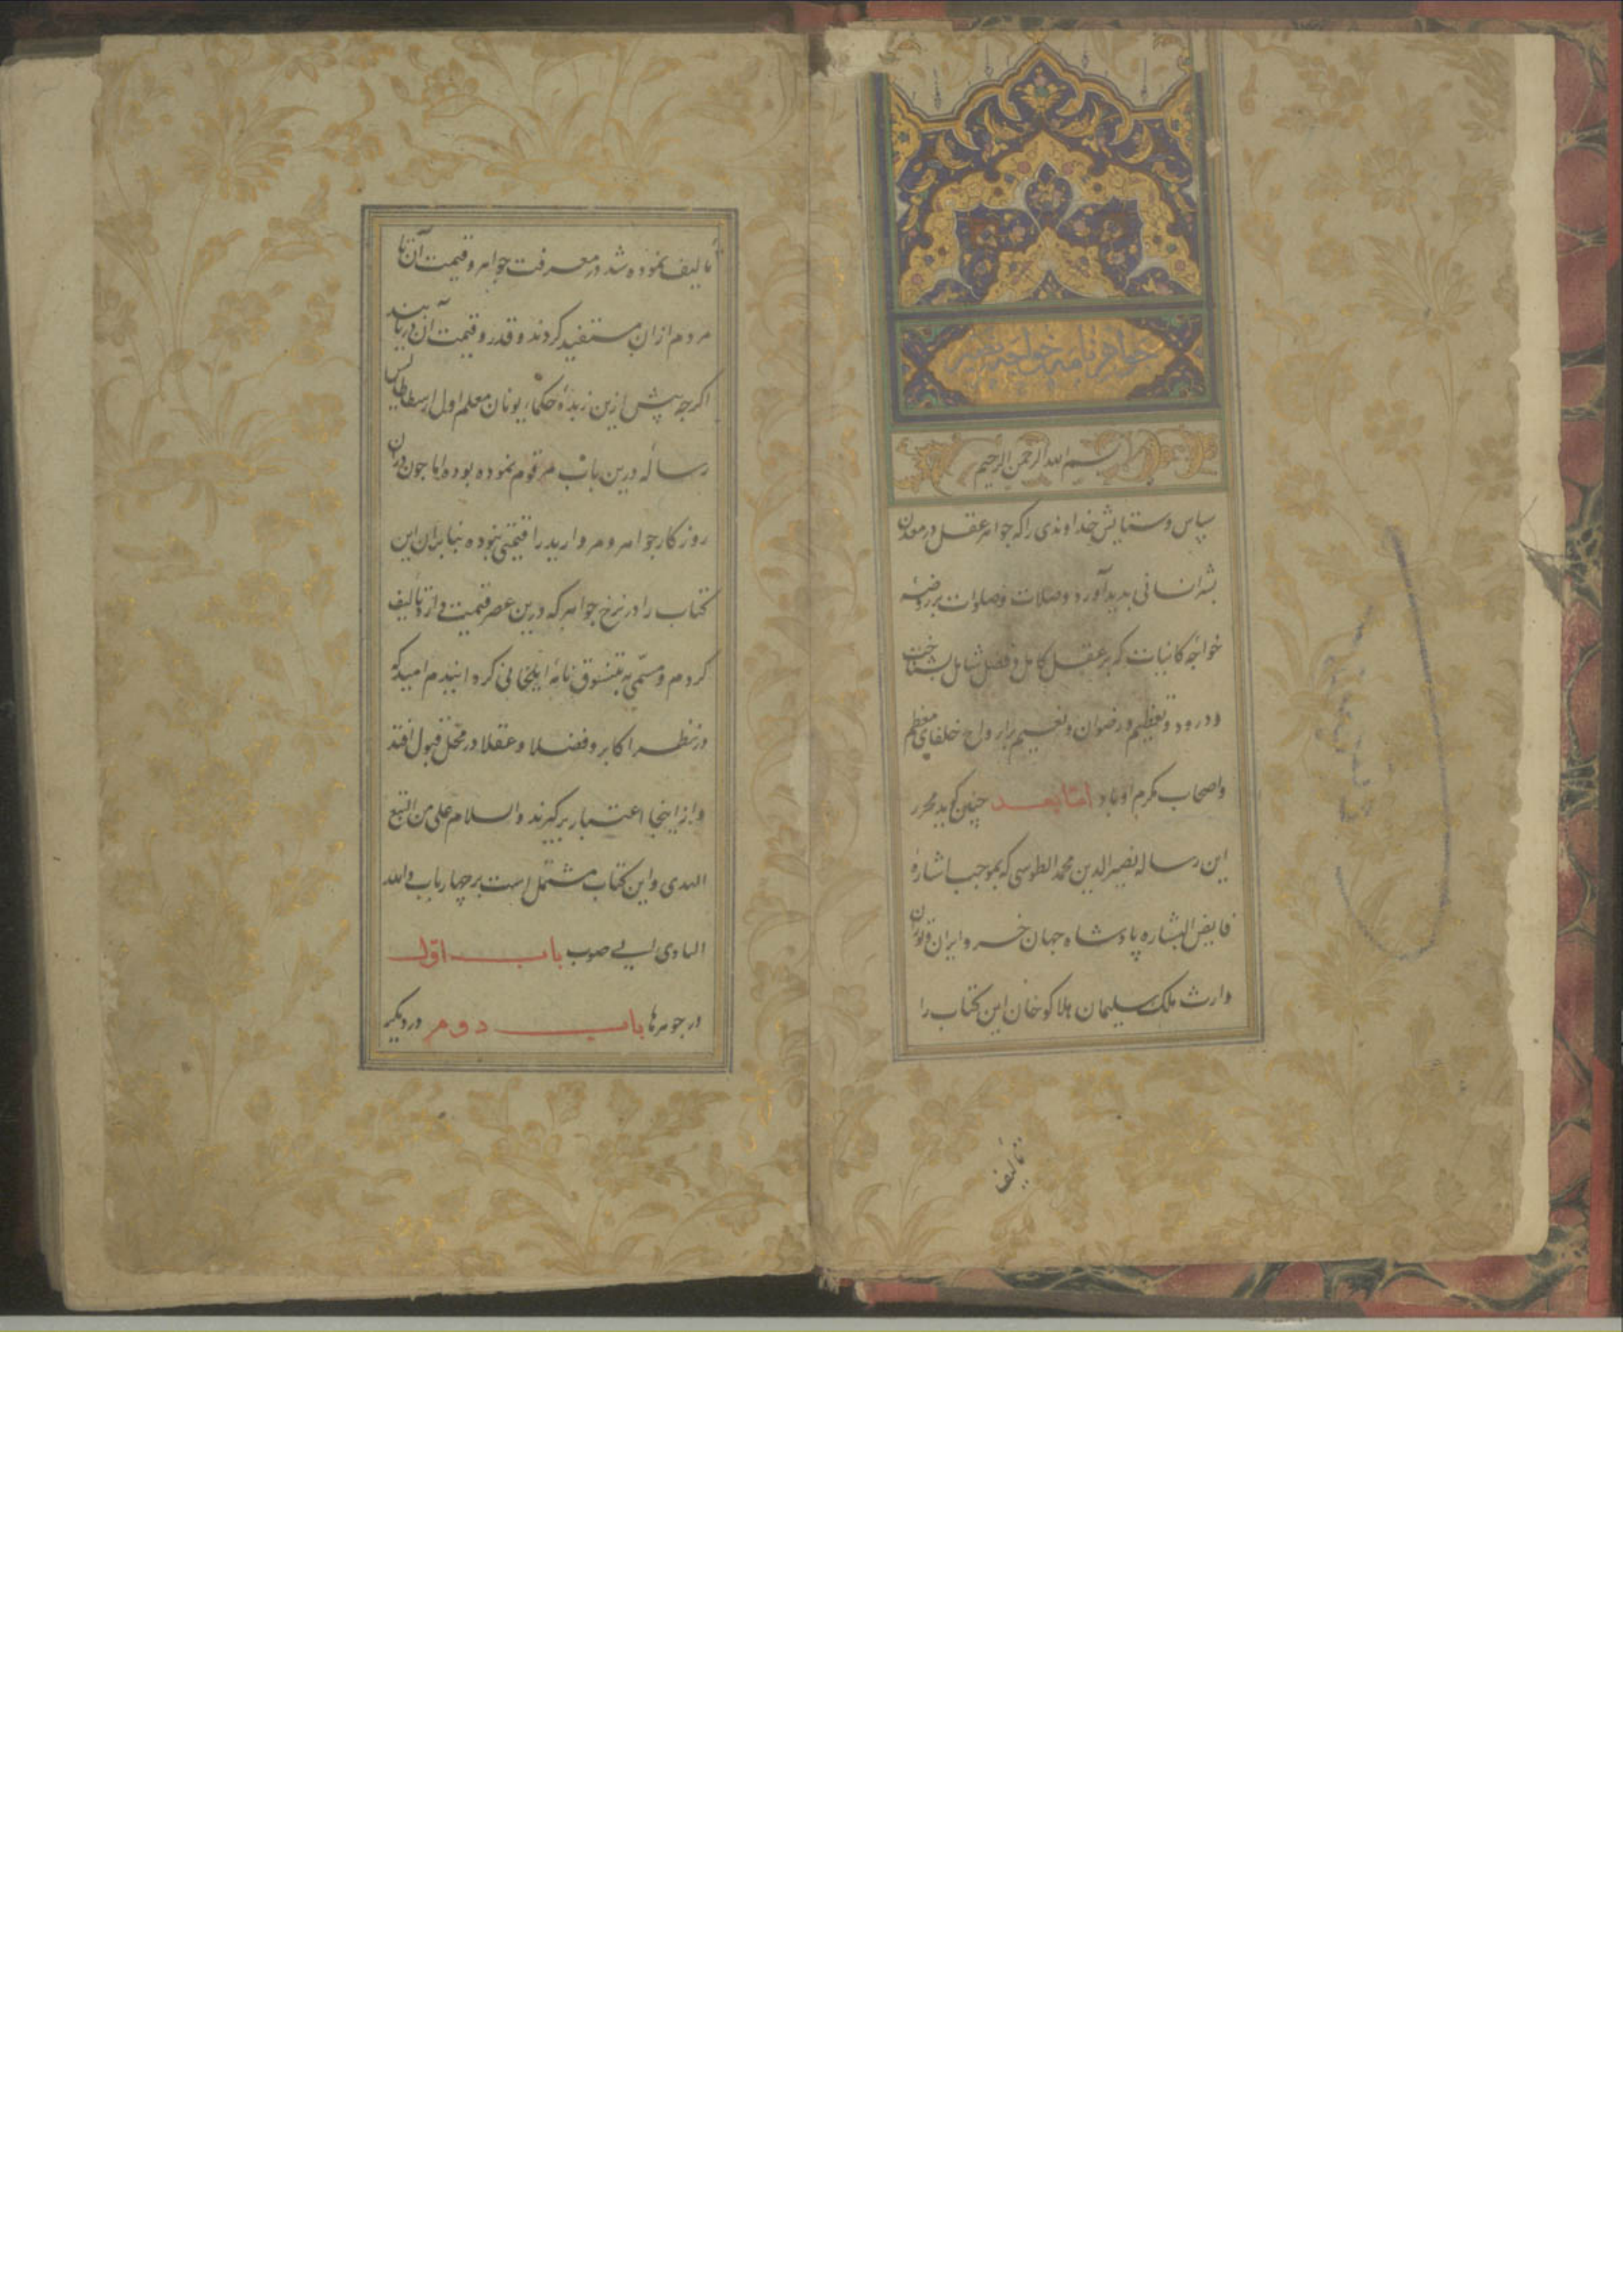 جواهر نامه خواجه نصیر
بسم الله الرحمن الرحیم
سپاس و ستایش خداوندی را که جواهر عقل در معدن
بشر انسانی بدید آورد و صلات و صلوات بر روضهٔ
خواجهٔ کانیات که بر عقل کامل و فضل شامل بشناخت
و درود و تعظیم و رضوان و نعیم بر ارواح خلفای معظم
واصحاب مکرم او باد اما بعد چنین کوید محرر
این رساله نصیرالدین محمد الطوسی که بموجب اشارهٔ
فایض البشاره پادشاه جهان خسرو ایران و توران
وارث ملک سلیمان هلاکوخان این کتاب را
تألیف
تألیف نموده شد در معرفت جواهر و قیمت آن تا
مردم از ان مستفید کردند و قدر و قیمت آن دریابند
اکرچه پیش ازین زبدهٔ حکماء یونان معلم اول ارسطاطالیس
رساله درین باب مرقوم نموده بوده اما جون دران
روزکار جواهر و مروارید را قیمتی نبوده بنابران این
کتاب را در نرخ جواهر که درین عصر قیمت دارد تألیف
کردم و مسمی به تنسوق نامهٔ ایلخانی کردانیدم امید که
در نظر اکابر و فضلا و عقلا در محل قبول افتد
و از اینجا اعتبار برکیرند والسلام علی من التبع
الهدی و این کتاب مشتمل است بر چهار باب والله
الهادی الی صوب باب اول
در جوهرها باب دوم در دیکر